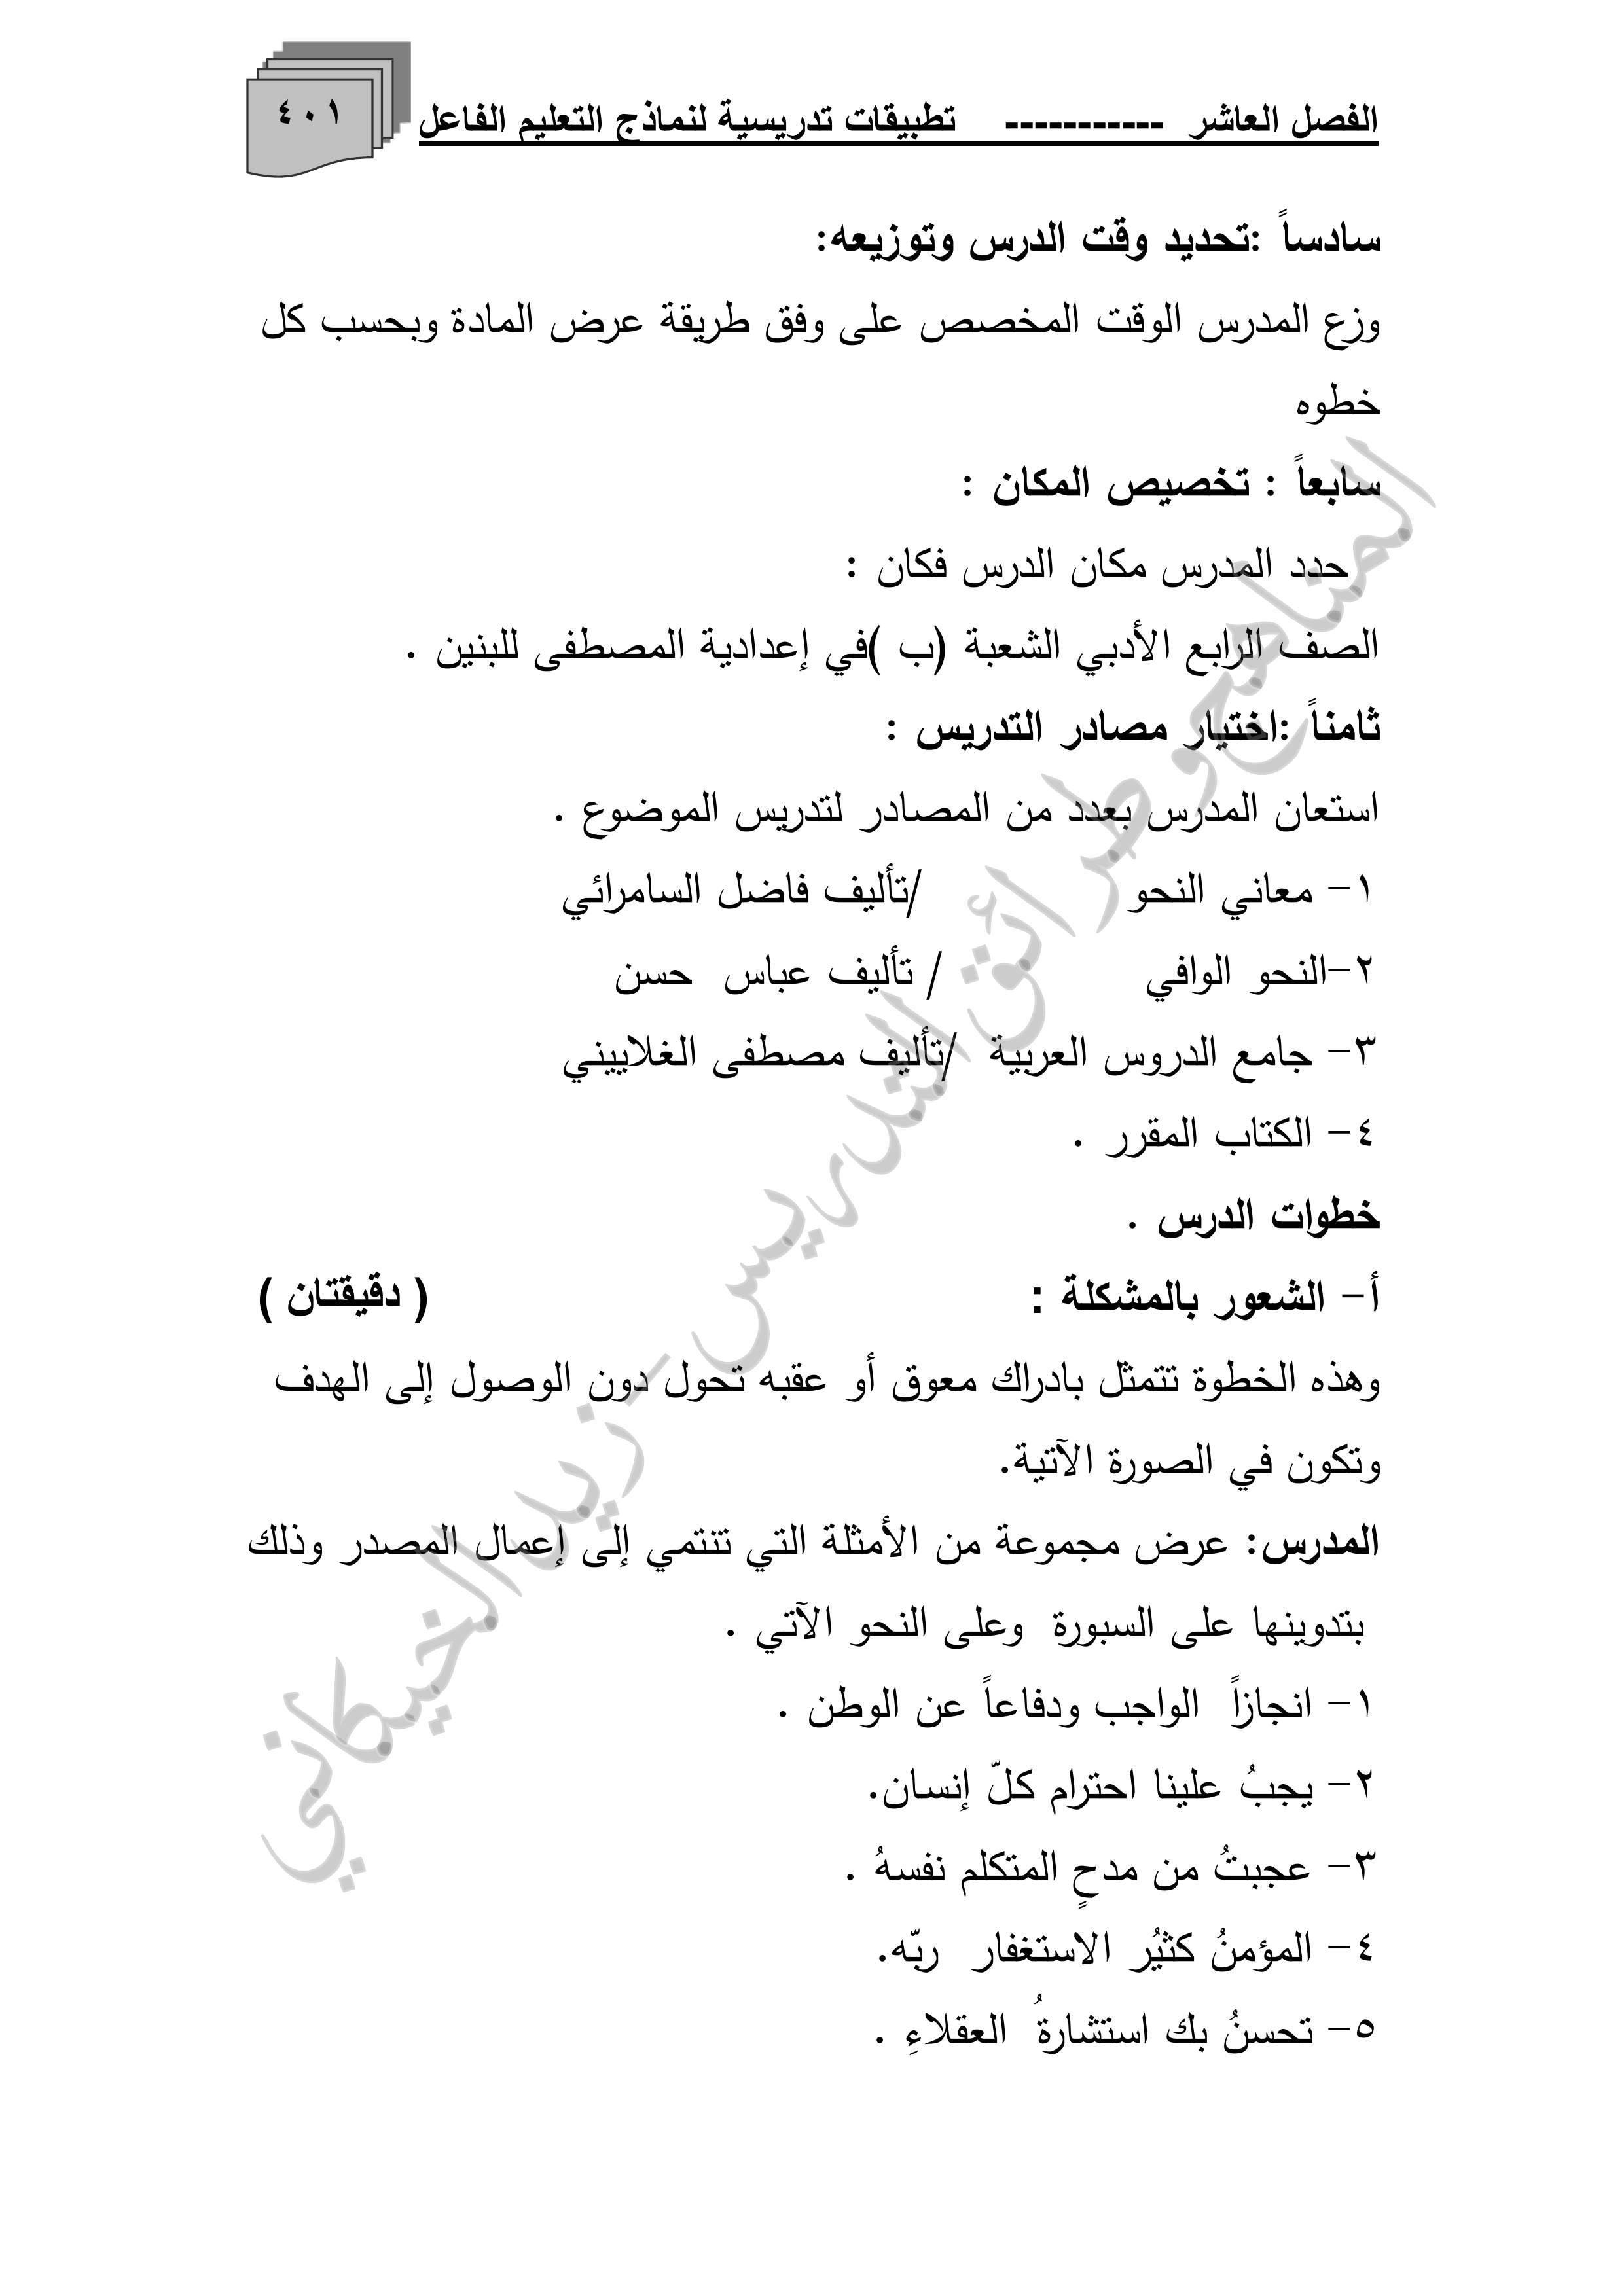 الفصل العاشر ----------- تطبيقات تدريسية لنماذج التعليم الفاعل
٤٠١
سادساً :تحديد وقت الدرس وتوزيعه:
وزع المدرس الوقت المخصص على وفق طريقة عرض المادة وبحسب كل
خطوه
سابعاً : تخصيص المكان :
حدد المدرس مكان الدرس فكان :
الصف الرابع الأدبي الشعبة (ب )في إعدادية المصطفى للبنين .
ثامناً :اختيار مصادر التدريس :
استعان المدرس بعدد من المصادر لتدريس الموضوع .
١- معاني النحو /تأليف فاضل السامرائي
٢-النحو الوافي / تأليف عباس حسن
٣- جامع الدروس العربية /تأليف مصطفى الغلاييني
٤- الكتاب المقرر .
خطوات الدرس .
أ- الشعور بالمشكلة : ( دقيقتان )
وهذه الخطوة تتمثل بادراك معوق أو عقبه تحول دون الوصول إلى الهدف
وتكون في الصورة الآتية.
المدرس: عرض مجموعة من الأمثلة التي تنتمي إلى إعمال المصدر وذلك
بتدوينها على السبورة وعلى النحو الآتي .
١- انجازاً الواجب ودفاعاً عن الوطن .
٢- يجبُ علينا احترام كلّ إنسان.
٣- عجبتُ من مدحٍ المتكلم نفسهُ .
٤- المؤمنُ كثيُر الاستغفار ربّه.
٥- تحسنُ بك استشارةُ العقلاءِ .
المناهج وطرائق التدريس - زيد الخيكاني